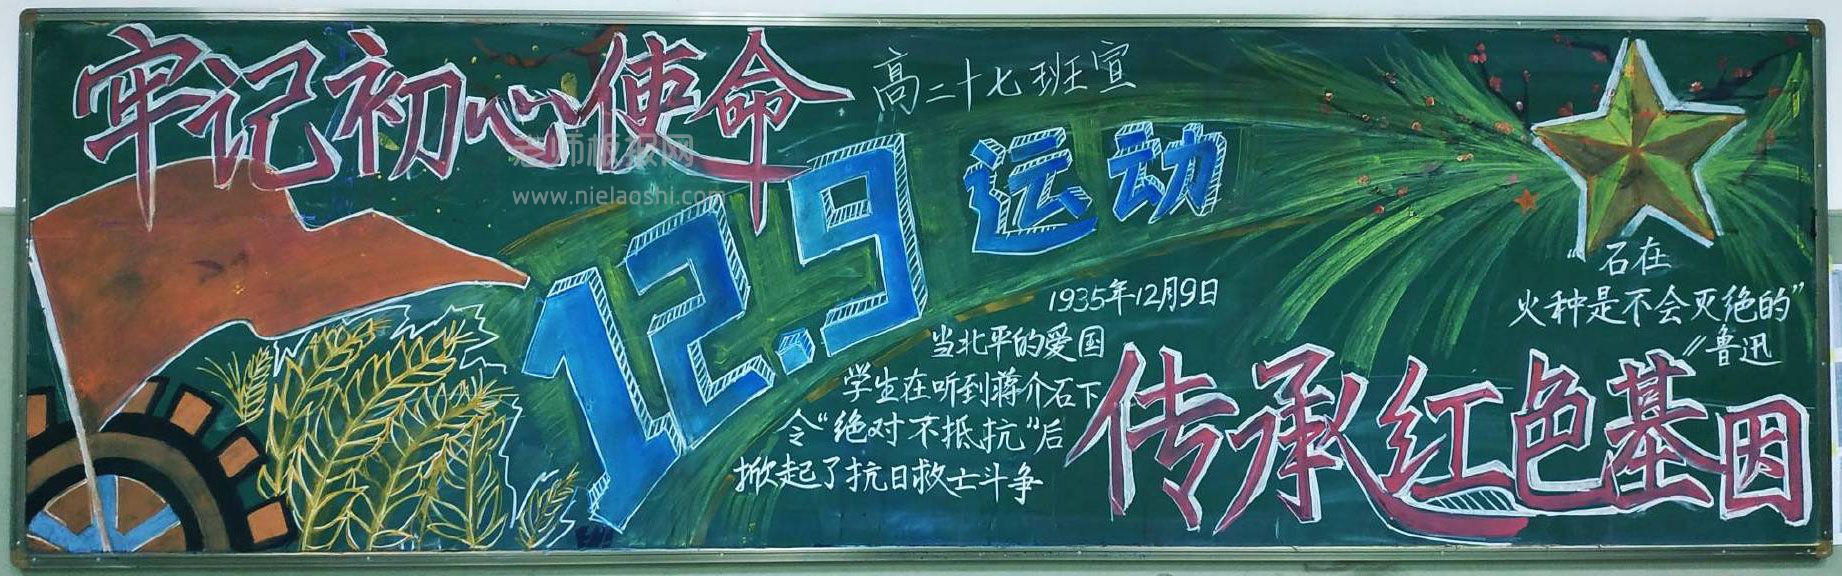 牢记初心使命
高二十七班宣
老师板报网
www.nielaoshi.com
12.9运动
1935年12月9日
当北平的爱国
学生在听到蒋介石下
令“绝对不抵抗”后
掀起了抗日救亡斗争
“石在
火种是不会灭绝的”
//鲁迅
传承红色基因